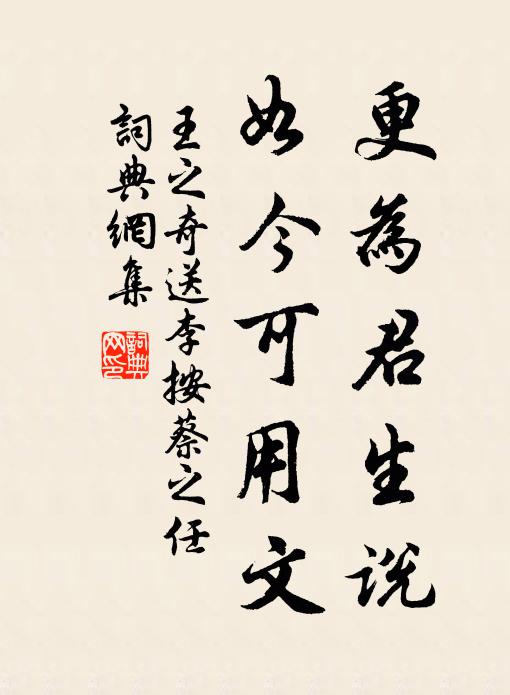 更為君生説
如今可用文
王之奇送李按蔡之任
詞典網集
詞典网印